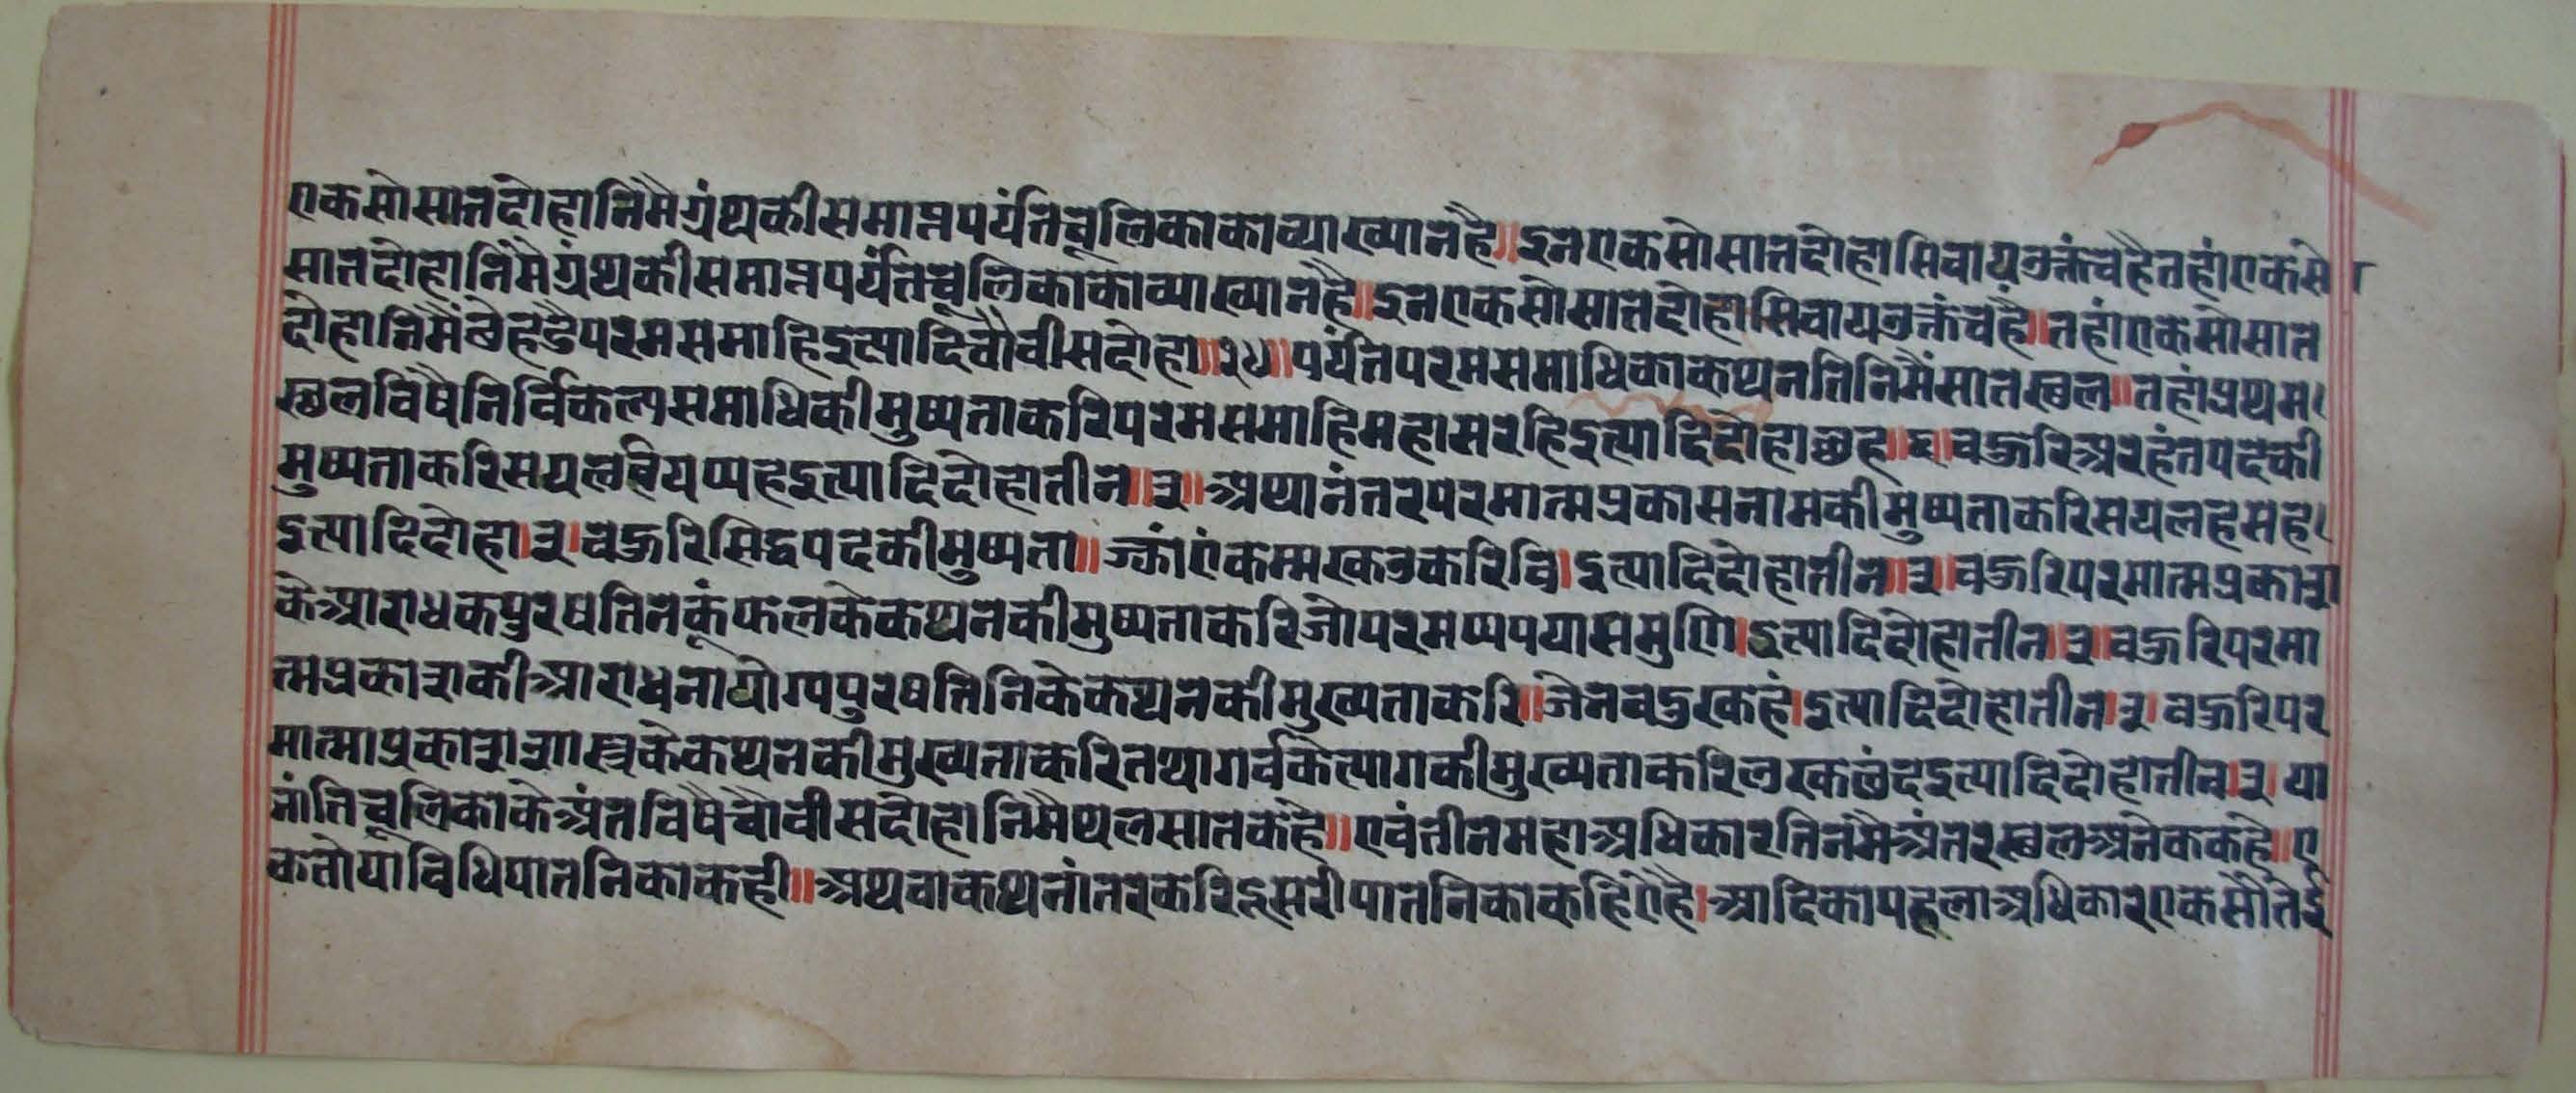 एकसोसातदोहानिमैग्रंथकीसमाप्तपर्यंतचूलिकाकाव्याख्यानहै॥इनएकसोसातदोहासिवायउक्तंचहैतहांएकसो
सातदोहानिमैग्रंथकीसमाप्तपर्यंतचूलिकाकाव्याख्यानहै॥इनएकसोसातदोहासिवायउक्तंचहै॥तहांएकसोसात
दोहानिमैंछेहडैपरमसमाहिइत्यादिचौवीसदोहा॥२४॥पर्यंतपरमसमाधिकाकथनतिनिमैंसातस्थल॥तहांप्रथम
स्थलविषैनिर्विकल्पसमाधिकीमुष्यताकरिपरमसमाहिमहासरहिइत्यादिदोहाछह॥६॥बऊरिअरहंतपदकी
मुष्यताकरिसयलवियप्पहइत्यादिदोहातीन॥३॥अथानंतरपरमात्मप्रकासनामकीमुष्यताकरिसयलहसह
इत्यादिदोहा।३।बऊरिसिद्धपदकीमुष्यता॥ज्झांएंकम्मरकउकरिवि।इत्यादिदोहातीन॥३॥बऊरिपरमात्मप्रकाश
केआराधकपुरषतिनकूंफलकेकथनकीमुष्यताकरिजोपरमप्पपयासमुणि।इत्यादिदोहातीन॥३॥बऊरिपरमा
त्मप्रकाशकीआराधनायोग्यपुरषतिनिकेकथनकीमुख्यताकरि॥जेनवदुरकहं।इत्यादिदोहातीन।३।बऊरिपर
मात्माप्रकाशशास्त्रकेकथनकीमुख्यताकरितथागर्वकेत्यागकीमुख्यताकरिलरकछंदइत्यादिदोहातीन।३।या
भांतिचूलिकाकेअंतविषैचौवीसदोहानिमैथलसातकहे॥एवंतीनमहाअधिकारतिनमैअंतरस्थलअनेककहे॥ए
कतोयाविधिपातनिकाकही॥अथवाकथनांतरकरिदूसरीपातनिकाकहिऐहै।आदिकापहलाअधिकारएकसौतेई